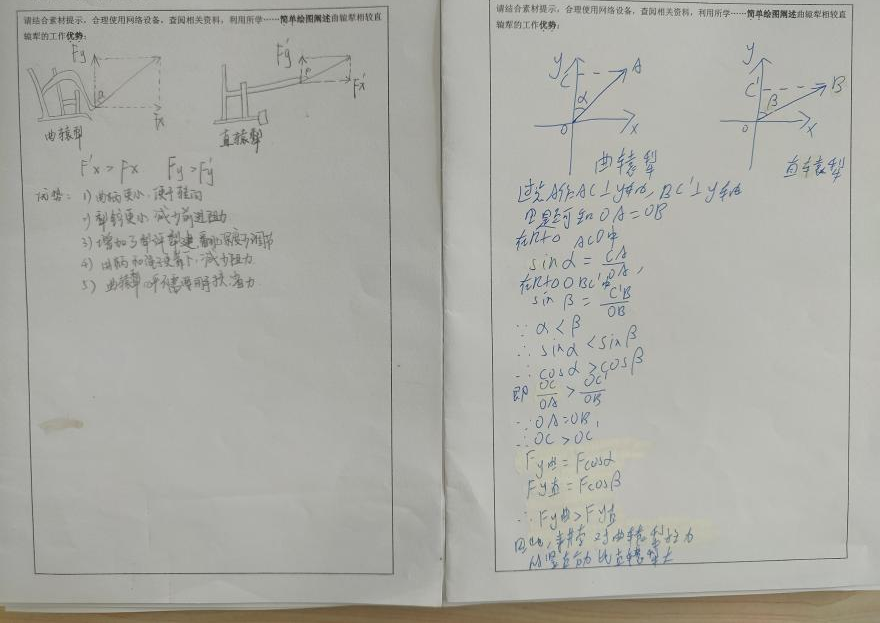 请结合素材提示，合理使用网络设备，查阅相关资料，利用所学……简单绘图阐述曲辕犁相较直
辕犁的工作优势：
Fy
Fx
曲辕犁
Fy'
Fx'
直辕犁
F'x > Fx Fy > Fy'
优势：1)
2) 减少前进阻力
3) 增加了犁评
4) 减少阻力
5) 曲辕犁
请结合素材提示，合理使用网络设备，查阅相关资料，利用所学……简单绘图阐述曲辕犁相较直
辕犁的工作优势：
y
C
A
α
O
x
曲辕犁
y
C'
B
β
O
x
直辕犁
过点A作AC⊥y轴, BC'⊥y轴
可知OA=OB
在Rt△ ACO中
sinα = CA/OA,
在Rt△OBC'中
sinβ = C'B/OB
∵ α<β
∴ sinα < sinβ
∴ cosα > cosβ
即 OC/OA > OC'/OB
∵ OA=OB,
∴ OC > OC'
Fy曲 = Fcosα
Fy直 = Fcosβ
∴ Fy曲 > Fy直
对曲辕犁
比直辕犁大